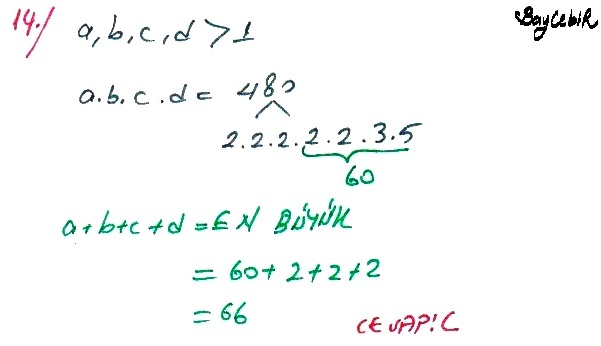 14./ a, b, c, d > 1
BayCebiR
a.b.c.d = 480
2.2.2.2.2.3.5
60
a+b+c+d = EN BÜYÜK
= 60+2+2+2
= 66
CEVAP: C